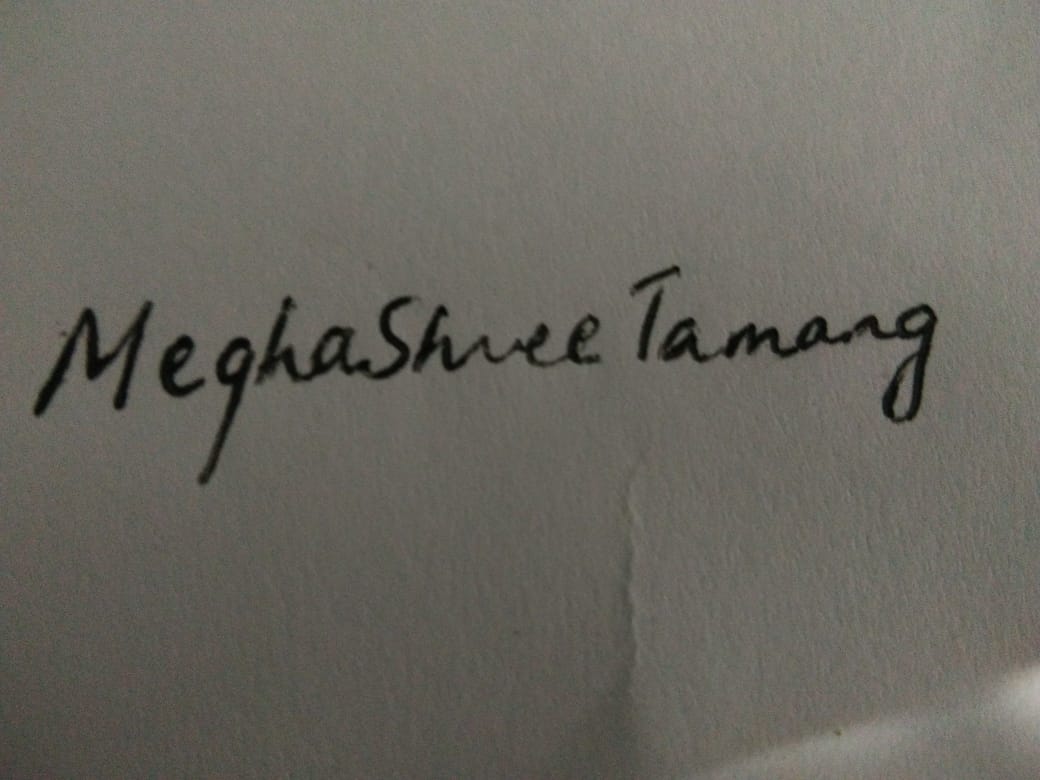 MeghaShree Tamang